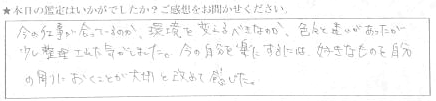 ★本日の鑑定はいかがでしたか？ご感想をお聞かせください。
今の仕事が合っているのか、環境を変えるべきなのか、色々と迷いがあったが
少し整理できた気がしました。今の自分を楽にするには、好きなものを自分
の周りにおくことが大切と改めて感じた。